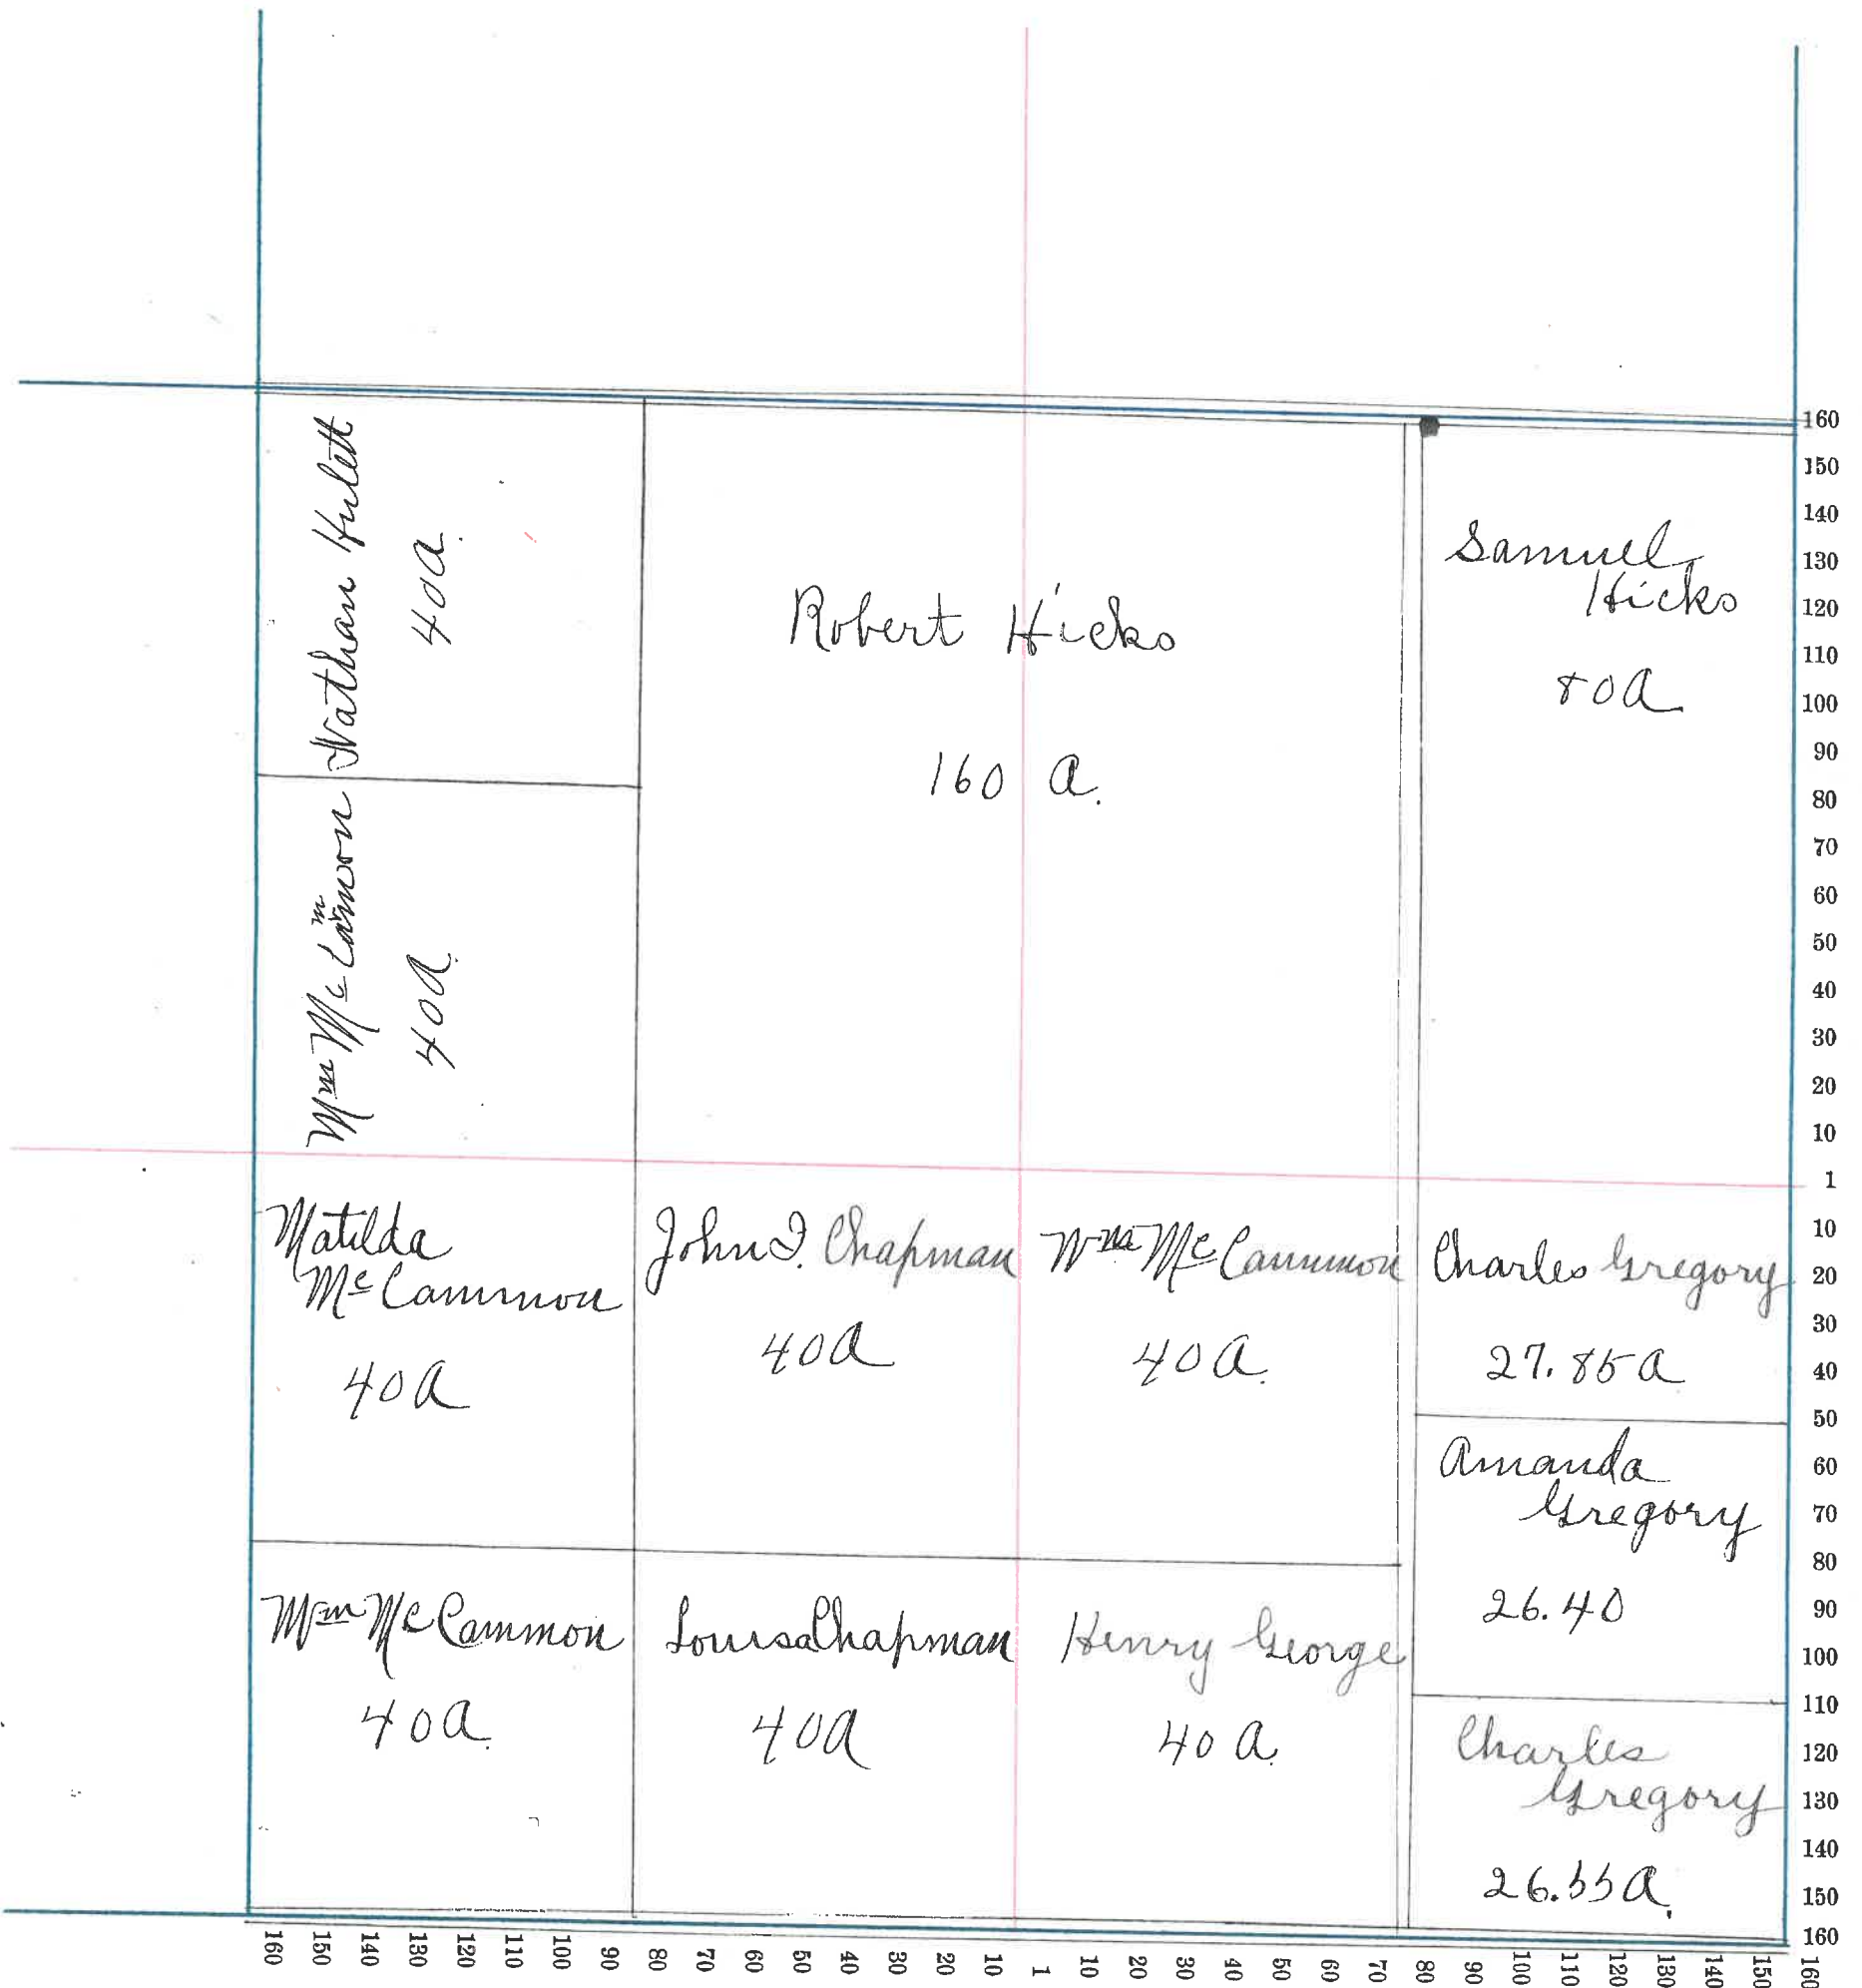 Nathan Hulett
40 a.
Robert Hicks
160 a.
Samuel
Hicks
80 a
Wm Mc Cammon
40 a.
Matilda
Mc Cammon
40 a
John I. Chapman
40 a
Wm Mc Cammon
40 a.
Charles Gregory
27.85 a
Amanda
Gregory
26.40
Wm Mc Cammon
40 a.
Louisa Chapman
40 a
Henry George
40 a.
Charles
Gregory
26.55 a.
160
150
140
130
120
110
100
90
80
70
60
50
40
30
20
10
1
10
20
30
40
50
60
70
80
90
100
110
120
130
140
150
160
160 150 140 130 120 110 100 90 80 70 60 50 40 30 20 10 1 10 20 30 40 50 60 70 80 90 100 110 120 130 140 150 160